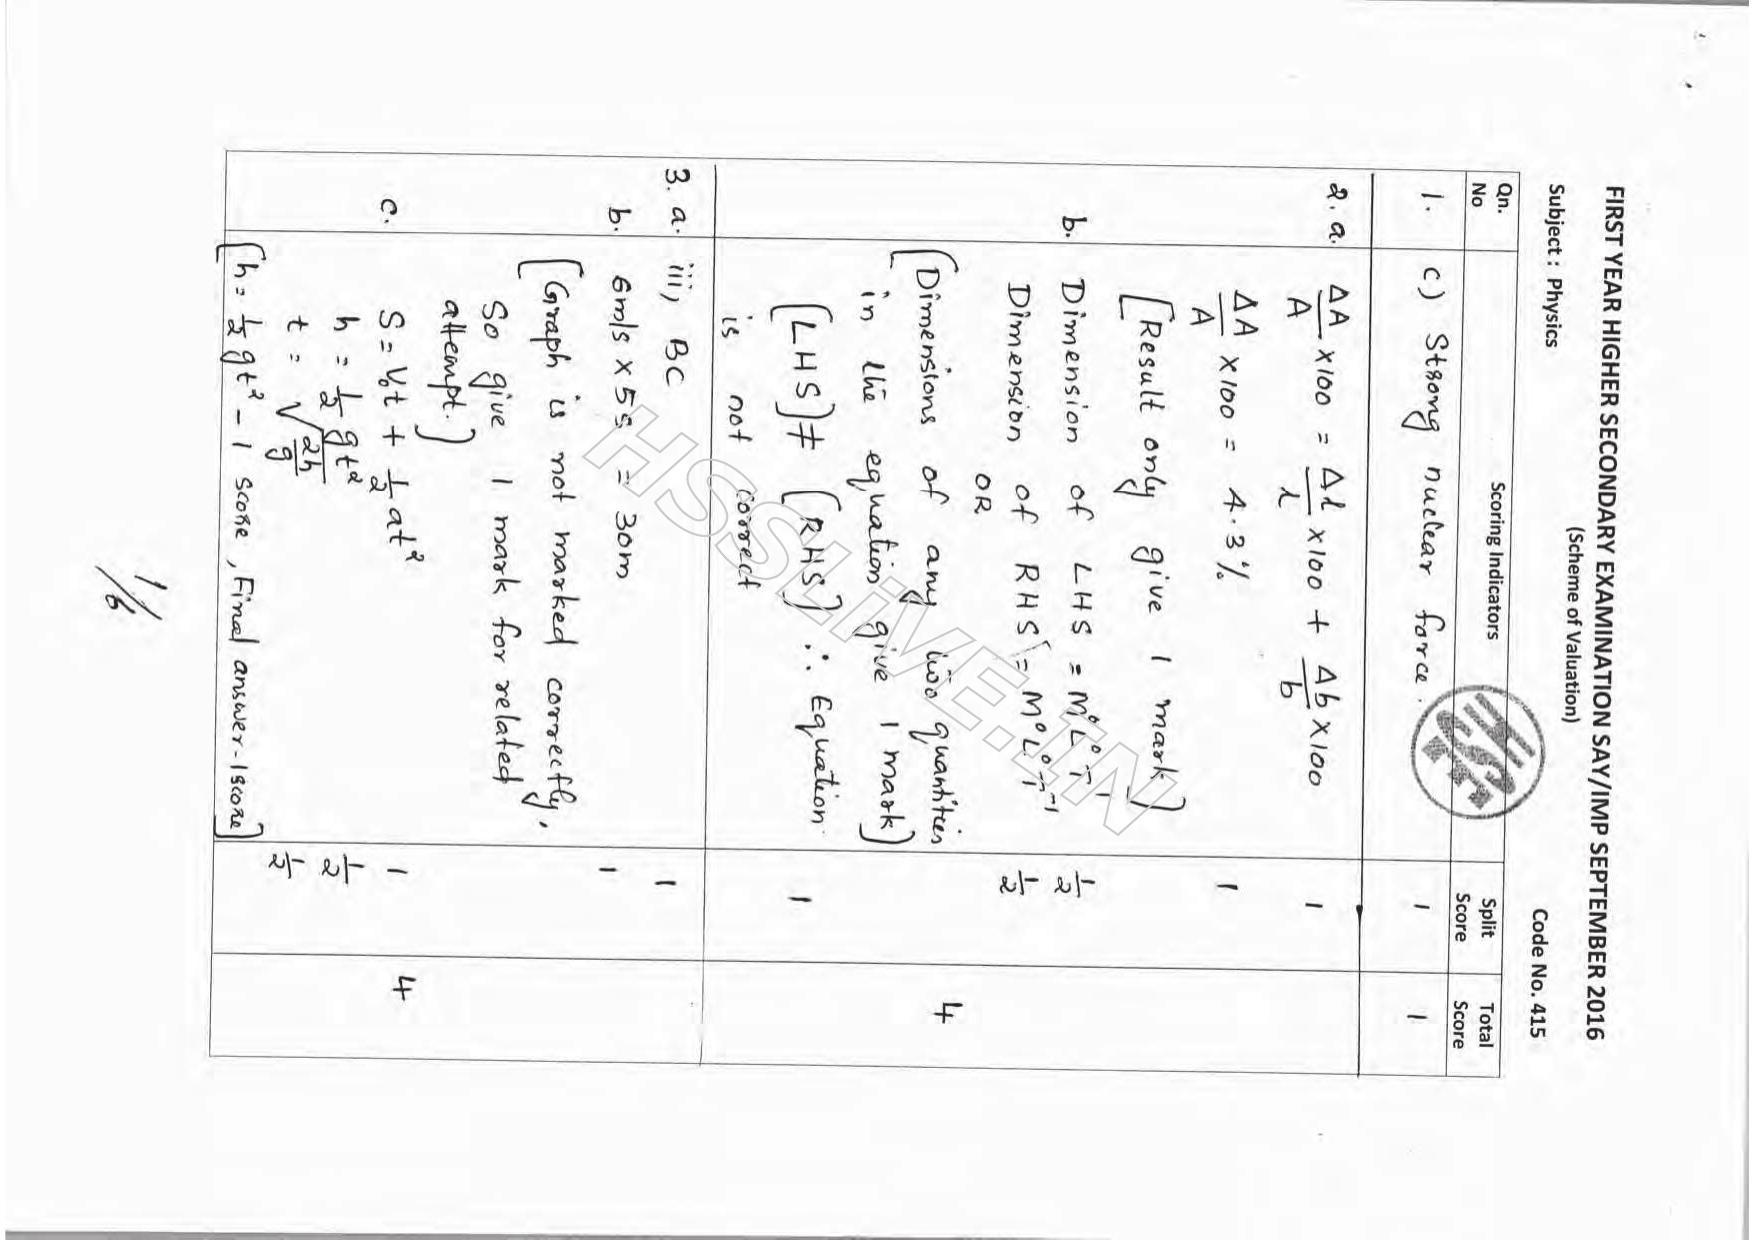 FIRST YEAR HIGHER SECONDARY EXAMINATION SAY/IMP SEPTEMBER 2016
(Scheme of Valuation)
Subject : Physics Code No. 415
Qn. No Scoring Indicators Split Score Total Score
1. c) Strong nuclear force. 1 1
2. a. ΔA/A ×100 = Δl/l ×100 + Δb/b ×100 1
ΔA/A ×100 = 4.3% 1
[Result only give 1 mark]
b. Dimension of LHS = M⁰L⁰T¹ 1/2
Dimension of RHS = M⁰L⁰T⁻¹ 1/2
OR
[Dimensions of any two quantities
in the equation give 1 mark]
[LHS] ≠ [RHS] ∴ Equation 1
is not correct
4
3. a. iii, BC 1
b. 6m/s × 5s = 30m 1
[Graph is not marked correctly,
So give 1 mark for related
attempt.]
c. S = V₀t + 1/2 at² 1
h = 1/2 gt² 1/2
t = √2h/g 1/2
[h = 1/2 gt² - 1 score, Final answer - 1 score]
4
1/6
HSSLiVE.IN